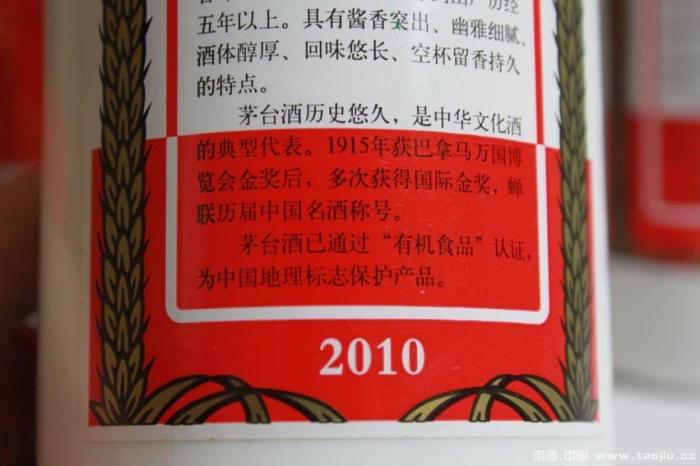 五年以上。具有酱香突出、幽雅细腻、
酒体醇厚、回味悠长、空杯留香持久
的特点。
茅台酒历史悠久，是中华文化酒
的典型代表。1915年获巴拿马万国博
览会金奖后，多次获得国际金奖，蝉
联历届中国名酒称号。
茅台酒已通过“有机食品”认证，
为中国地理标志保护产品。
2010
淘酒.中国 www.taojiu.cc